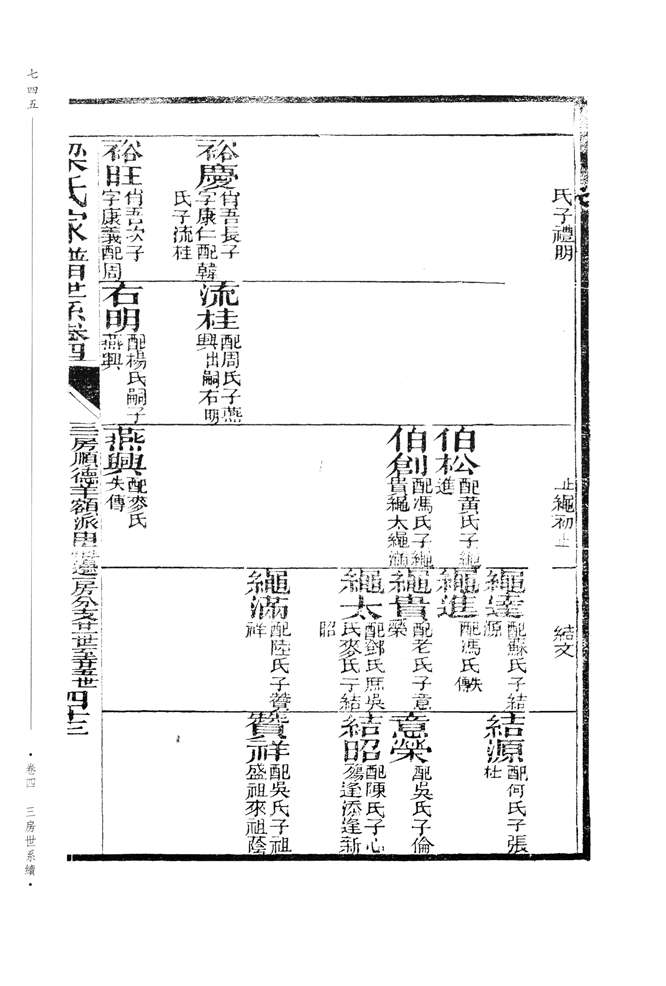 七四五
卷四　三房世系續
氏子禮明
裕慶
肖吾長子
字康仁配韓
氏子流桂
裕旺
肖吾次子
字康義配周
流桂
配周氏子燕
興出嗣右明
右明
配楊氏嗣子
燕興
止繩初止
伯松
配黃氏子繩
進
伯創
配馮氏子繩
貴繩太繩滿
燕興
配麥氏
失傳
結文
繩達
配蘇氏子結
源
繩進
配馮氏傳失
繩貴
配老氏子意
榮
繩太
配鄧氏庶吳
氏麥氏子結
昭
繩滿
配陸氏子贊
祥
結源
配何氏子張
杜
意榮
配吳氏子倫
結昭
配陳氏子心
逢添逢新
贊祥
配吳氏子祖
盛祖來祖蔭
梁氏家譜世系卷四
三房順德羊額派
房分支廿一世至廿五世
四十三